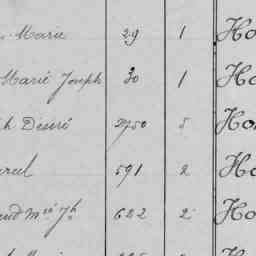 Marie 29 1 Ho
Marie Joseph 30 1 Ho
h Desiré 2750 5 Ho
rcel 591 2 Ho
and Mié Jh 622 2 Ho